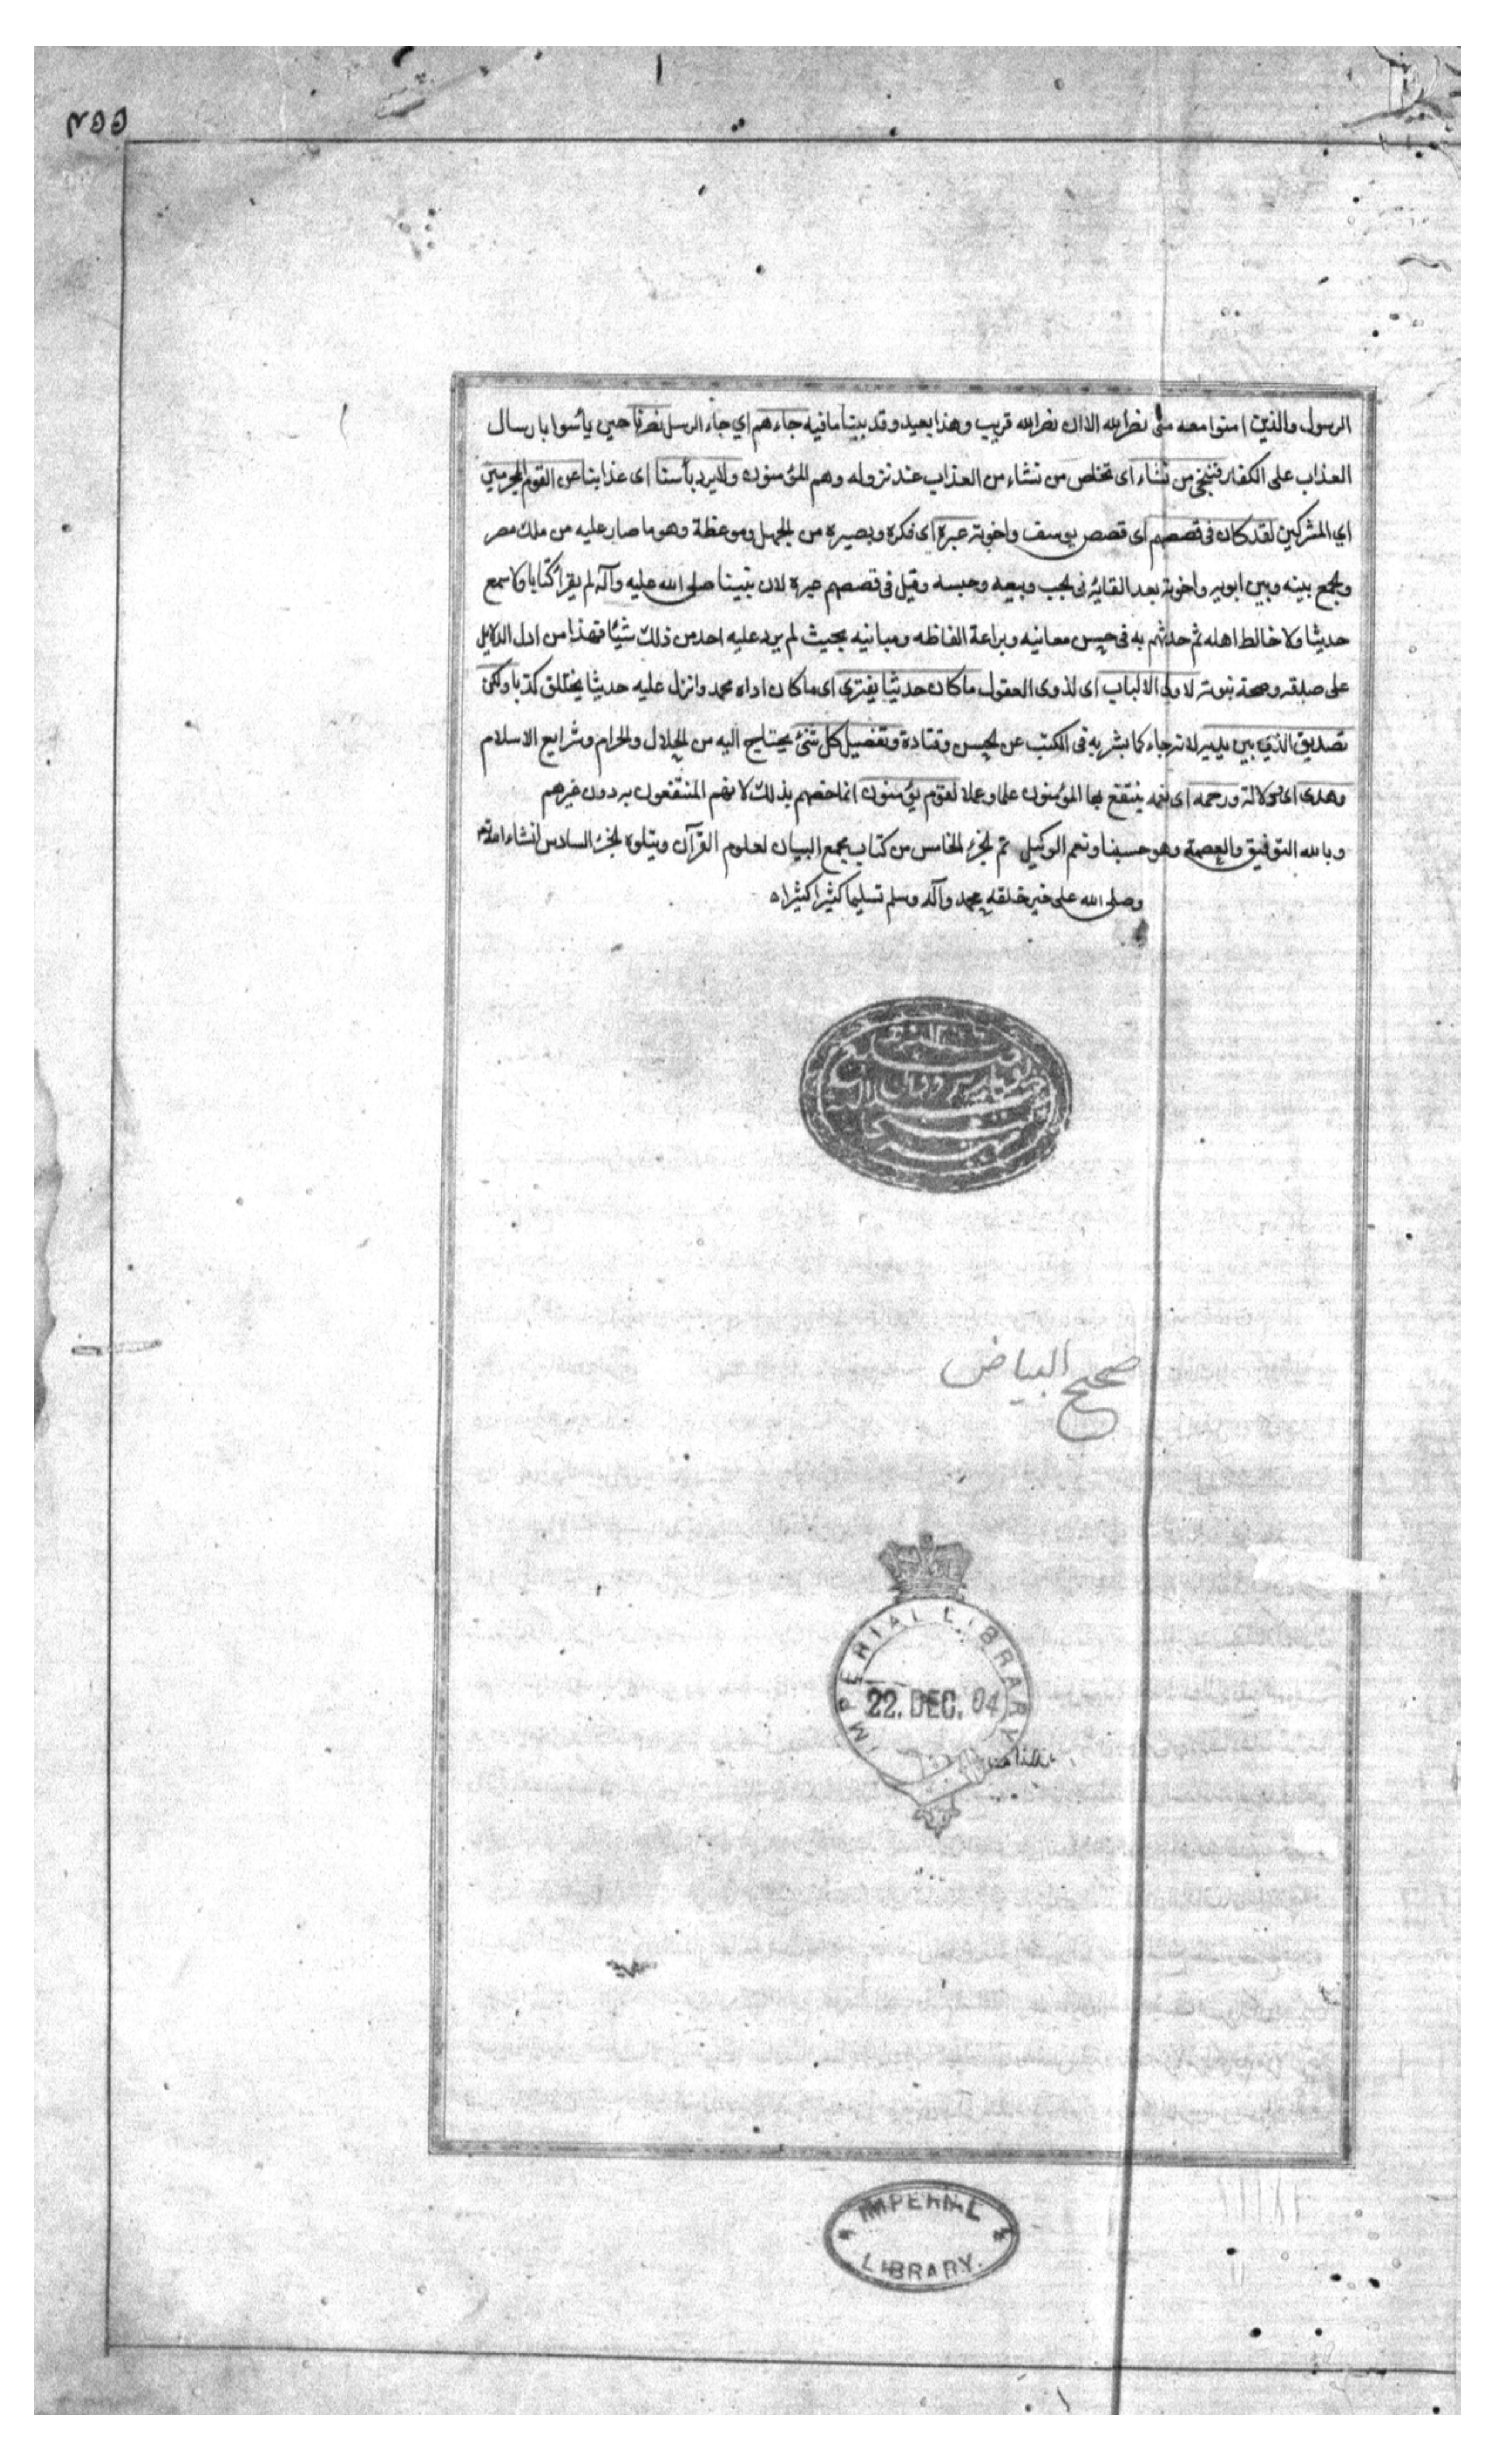 الرسول والذين امنوا معه متى نصر الله الا ان نصر الله قريب وهذا بعيد وقد بينا ما فيه جاءهم اي جاء الرسل نصرنا حين يأسوا بارسال
العذاب على الكفار فننجي من نشاء اى نخلص من نشاء من العذاب عند نزوله وهم المؤمنون ولا يرد بأسنا اى عذابنا عن القوم المجرمين
اي المشركين لقد كان فى قصصهم اى قصص يوسف واخوته عبرة اى فكرة وبصيرة من الجهل وموعظة وهو ما صار عليه من ملك مصر
والجمع بينه وبين ابويه واخوته بعد القائه فى الجب وبيعه وحبسه وقيل فى قصصهم عبرة لان نبينا صلى الله عليه وآله لم يقرأ كتابا ولا سمع
حديثا ولا خالط اهله ثم حدثهم به فى حسن معانيه وبراعة الفاظه ومبانيه بحيث لم يرد عليه احد من ذلك شيئا فهذا من ادل الدلايل
على صدقه وصحة نبوته لاولى الالباب اى لذوى العقول ما كان حديثا يفترى اى ما كان اداه محمد وانزل عليه حديثا يختلق كذبا ولكن
تصديق الذي بين يديه لانه جاء كما بشر به فى الكتب عن الحسن وقتادة وتفصيل كل شئ يحتاج اليه من الحلال والحرام وشرايع الاسلام
وهدى اى دلالة ورحمه اى نعمه ينتفع بها المؤمنون علما وعملا لقوم يؤمنون انما خصهم بذلك لانهم المنتفعون به دون غيرهم
وبالله التوفيق والعصمة وهو حسبنا ونعم الوكيل تم الجزء الخامس من كتاب مجمع البيان لعلوم القرآن ويتلوه الجزء السادس انشاء الله
وصلى الله على خير خلقه محمد وآله وسلم تسليما كثيرا كثيرا
صحيح البياض
IMPERIAL LIBRARY
22. DEC. 04
IMPERIAL
LIBRARY.